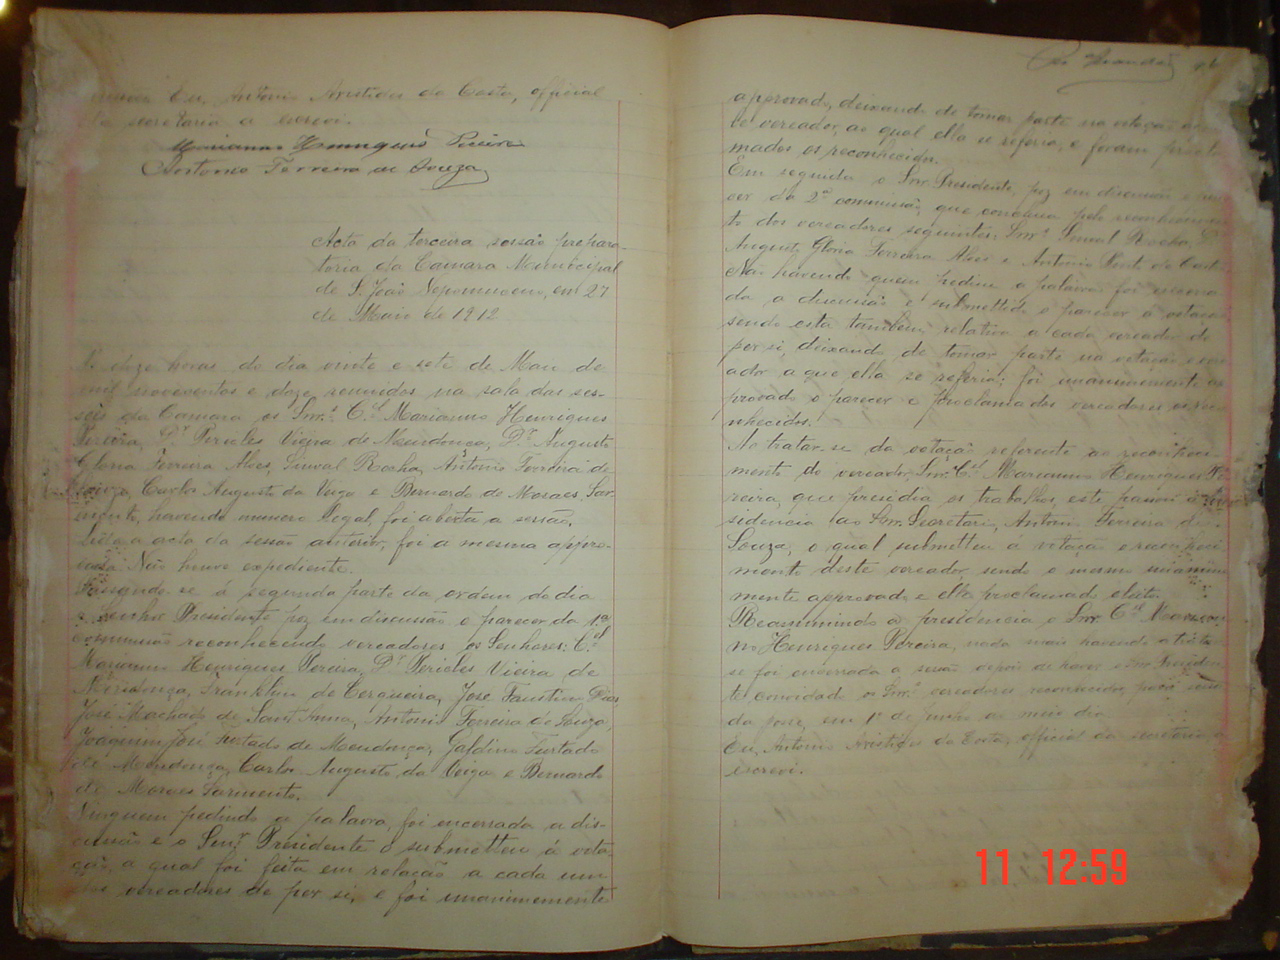 Eu, Antonio Aristides da Costa, official
da secretaria a escrevi.
Marianno Henriques Pereira
Antonio Ferreira de Souza
Acta da terceira sessão prepara-
toria da Camara Municipal
de S. João Nepomuceno, em 27
de Maio de 1912
Ás doze horas do dia vinte e sete de Maio de
mil novecentos e doze reunidos na sala das ses-
sões da Camara os Snrs. Cel. Marianno Henriques
Pereira, Dr. Pericles Vieira de Mendonça, Dr. Augusto
Gloria Ferreira Alves, Sinval Rocha, Antonio Ferreira de
Souza, Carlos Augusto da Veiga e Bernardo de Moraes Sar-
mento, havendo numero legal, foi aberta a sessão.
Lida a acta da sessão anterior, foi a mesma appro-
vada. Não houve expediente.
Passando-se á segunda parte da ordem do dia
o Senhor Presidente poz em discussão o parecer da 1ª
commissão reconhecendo vereadores os Senhores: Cel.
Marianno Henriques Pereira, Dr. Pericles Vieira de
Mendonça, Franklin de Cerqueira, José Faustino Dias,
José Machado de Sant'Anna, Antonio Ferreira de Souza,
Joaquim José Furtado de Mendonça, Galdino Furtado
de Mendonça, Carlos Augusto da Veiga e Bernardo
de Moraes Sarmento.
Ninguem pedindo a palavra, foi encerrada a dis-
cussão e o Snr. Presidente o submetteu á vota-
ção, a qual foi feita em relação a cada um
dos vereadores de per si, e foi unanimemente
approvado, deixando de tomar parte na votação o
vereador, ao qual ella se referia, e foram procla-
mados os reconhecidos.
Em seguida o Snr. Presidente, poz em discussão o pare-
cer da 2ª commissão, que concluia pelo reconhecimen-
to dos vereadores seguintes: Snrs. Sinval Rocha, Dr.
Augusto Gloria Ferreira Alves e Antonio
Não havendo quem pedisse a palavra foi encerra-
da a discussão e submettido o parecer á votação
sendo esta tambem relativa a cada vereador de
per si, deixando de tomar parte na votação o vere-
ador a que ella se referia; foi unanimemente ap-
provado o parecer e proclamados vereadores os reco-
nhecidos.
Ao tratar-se da votação referente ao reconheci-
mento do vereador Snr. Cel. Marianno Henriques Pe-
reira, que presidia os trabalhos, este passou a pre-
sidencia ao Snr. Secretario, Antonio Ferreira de
Souza, o qual submetteu á votação o reconheci-
mento deste vereador, sendo o mesmo unanime-
mente approvado e elle proclamado eleito.
Reassumindo a presidencia o Snr. Cel. Marian-
no Henriques Pereira, nada mais havendo a tratar-
se foi encerrada a sessão depois de haver o Snr. Presiden-
te convidado os Snrs. vereadores reconhecidos para
da posse, em 1º de Junho ao meio dia.
Eu, Antonio Aristides da Costa, official da secretaria, a
escrevi.
11 12:59